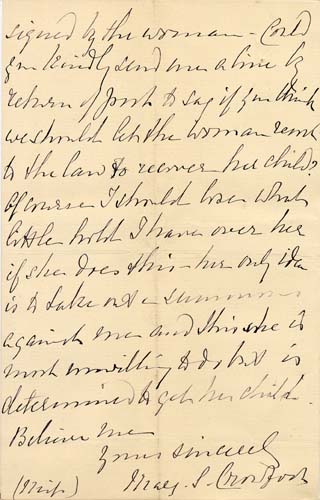 signed by the woman – Could
you kindly send me a line by
return of post to say if you think
we should let the woman resort
to the law to recover her child?
Of course I should lose what
little hold I have over her
if she does this – her only idea
is to take out a summons
against me and this she is
most unwilling to do but is
determined to get her child.
Believe me
Yours sincerely
(Miss) Mary S. Crowfoot